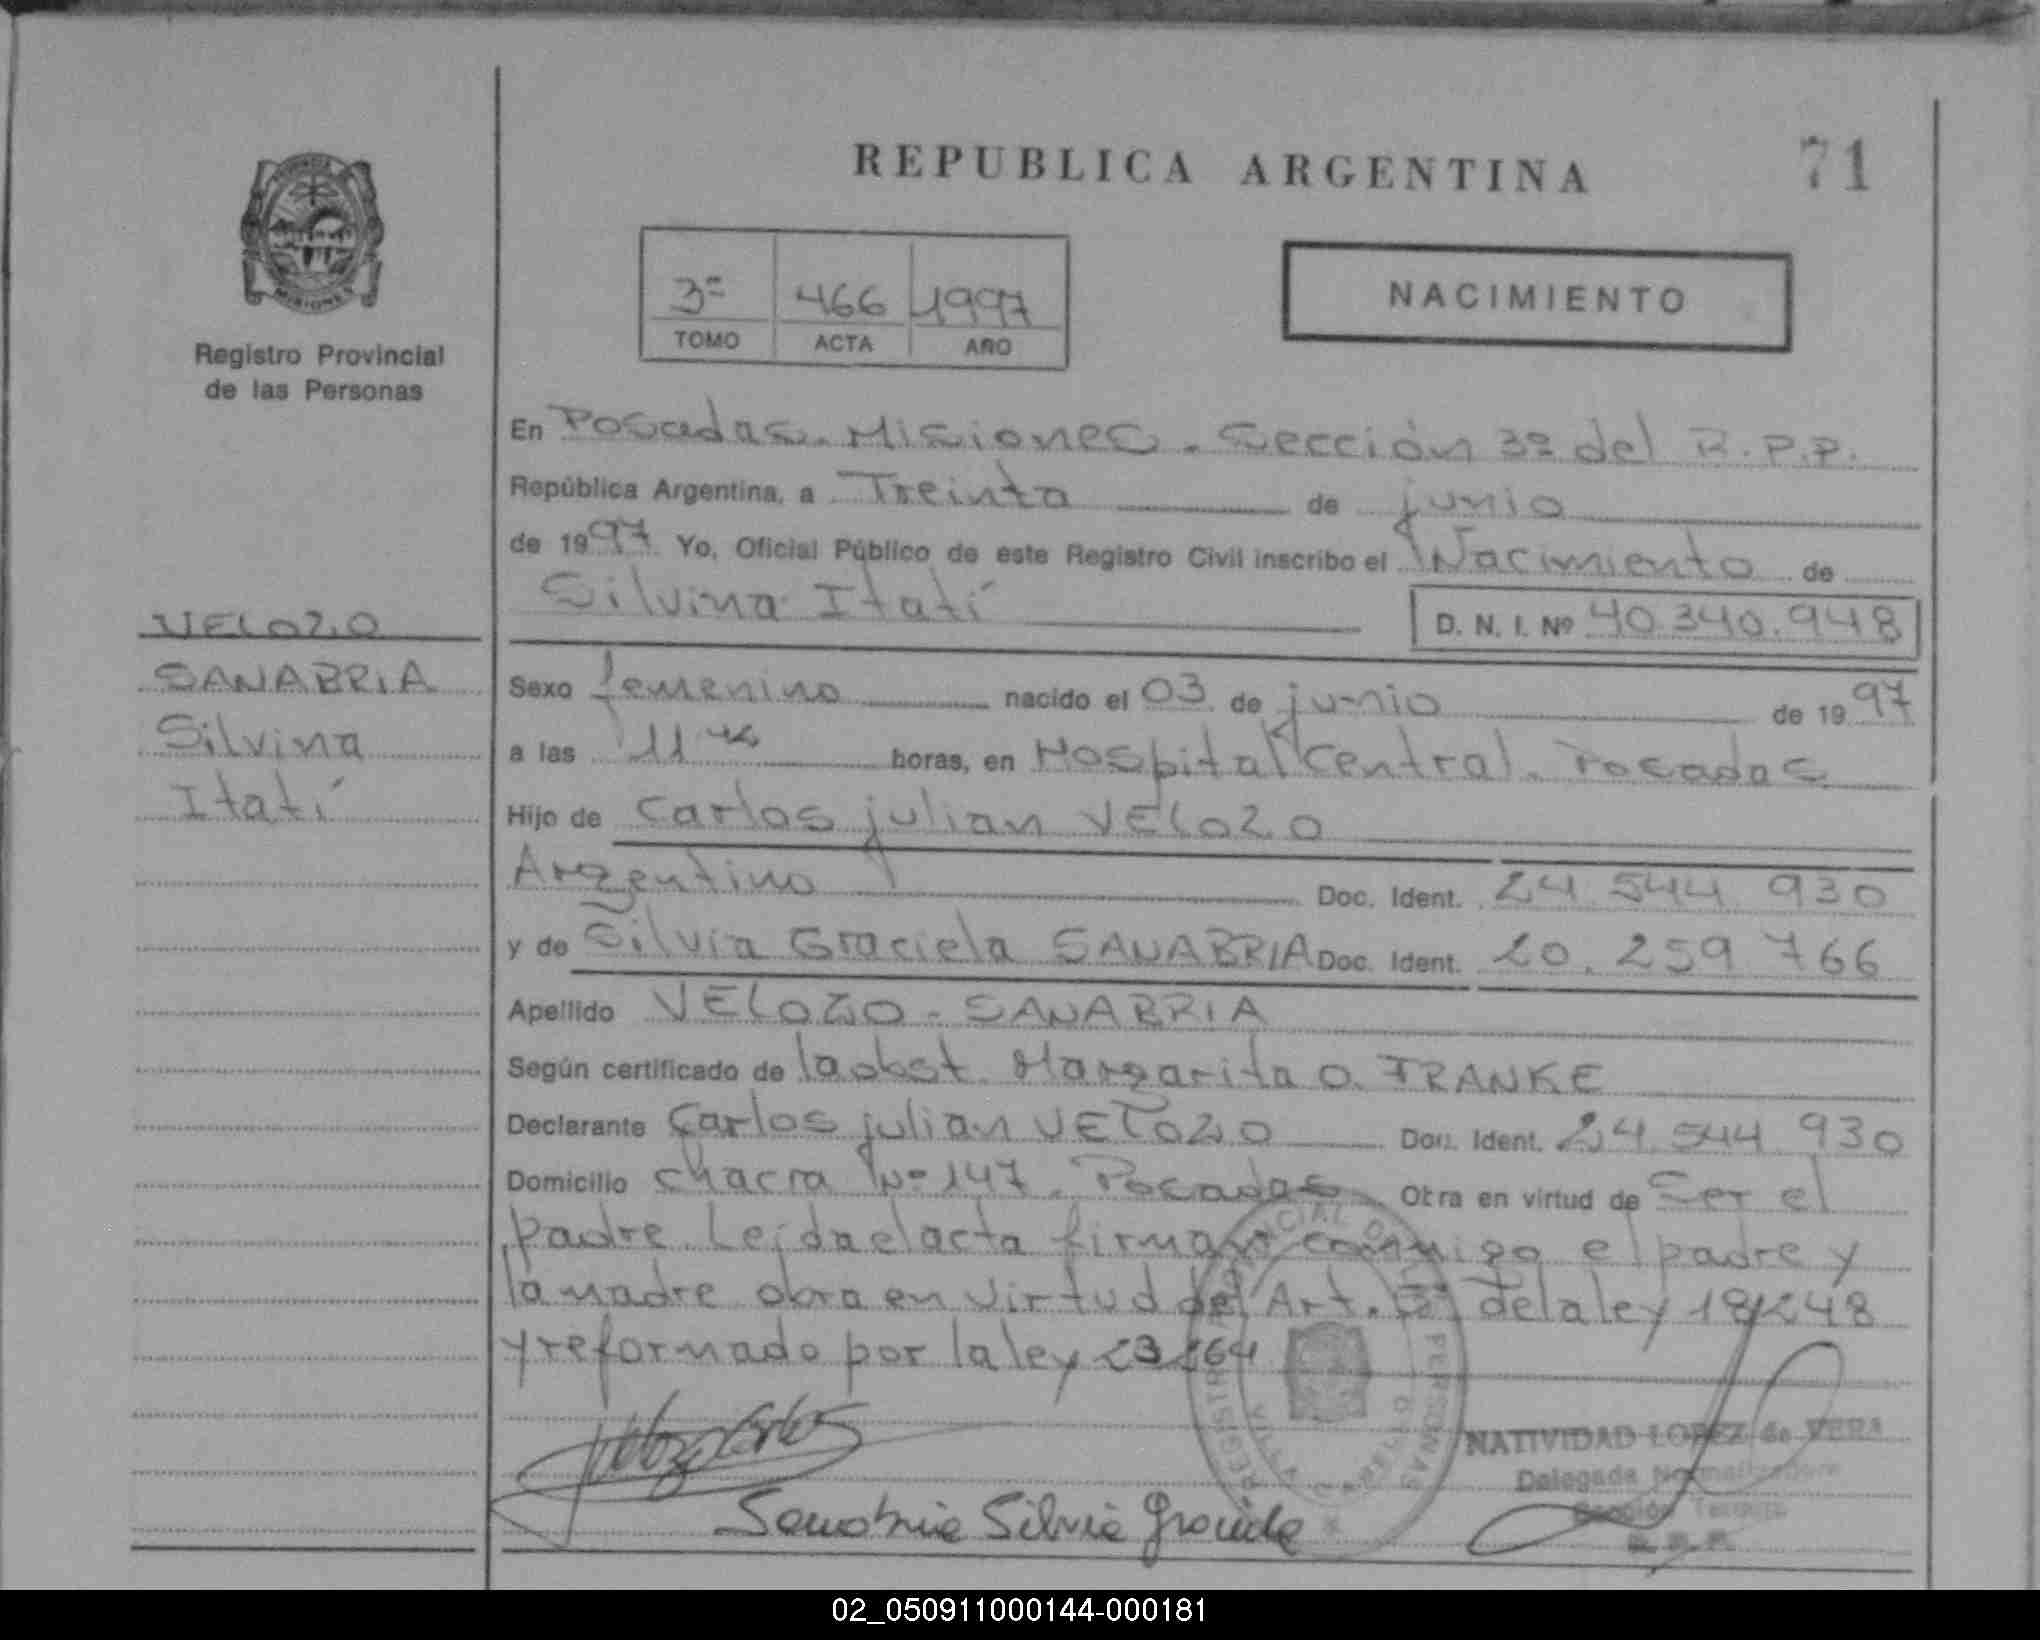 REPUBLICA ARGENTINA
71
3º 466 1997
TOMO ACTA AÑO
NACIMIENTO
MISIONES
Registro Provincial
de las Personas
En Posadas. Misiones. Sección 3º del R.P.P.
República Argentina, a Treinta de junio
de 1997 Yo, Oficial Público de este Registro Civil inscribo el Nacimiento de
Silvina Itatí
D. N. I. Nº 40.340.948
VELOZO
SANABRIA
Silvina
Itatí
Sexo femenino nacido el 03 de junio de 1997
a las 11 horas, en Hospital Central. Posadas
Hijo de Carlos julian VELOZO
Argentino Doc. Ident. 24 544 930
y de Silvia Graciela SANABRIA Doc. Ident. 20.259 766
Apellido VELOZO - SANABRIA
Según certificado de la obst. Margarita O. FRANKE
Declarante Carlos julian VELOZO Doc. Ident. 24 544 930
Domicilio chacra Nº 147. Posadas Obra en virtud de Ser el
padre. Leída el acta firman conmigo el padre y
la madre obra en virtud del Art. 5º de la ley 18248
y reformado por la ley 23264
Velozo Carlos
Sanabria Silvia Graciela
REGISTRO PROVINCIAL DE PERSONAS
NATIVIDAD LOPEZ de VERA
Delegada Normalizadora
Sección Tercera
R. P. P.
02_050911000144-000181